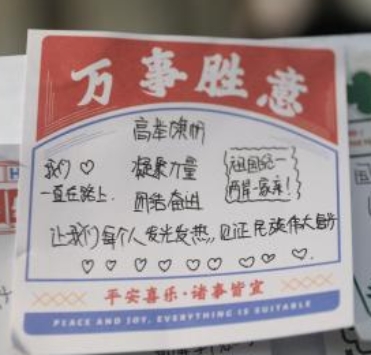 万事胜意
高举旗帜
我们♡
凝聚力量
祖国统一
一直在路上.
团结奋进
两岸一家亲!
让我们每个人发光发热, 见证民族伟大复兴
♡ ♡ ♡ ♡ ♡ ♡ ♡ ♡ ♡.
平安喜乐·诸事皆宜
PEACE AND JOY, EVERYTHING IS SUITABLE